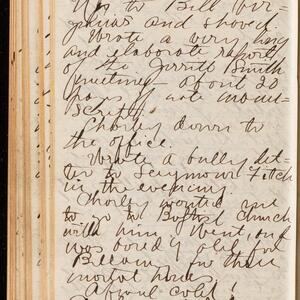 to Bill Vir-
ginius and shoved.
Wrote a very long
and elaborate report
of the Gerritt Smith
meeting about 20
pages of note manu-
script.
Charley down to
the office.
Wrote a bully let-
ter to Seymour Fitch
in the evening.
Charley wanted me
to go to Baptist Church
with him. Went, and
was bored by old
for three
mortal hours
cold!